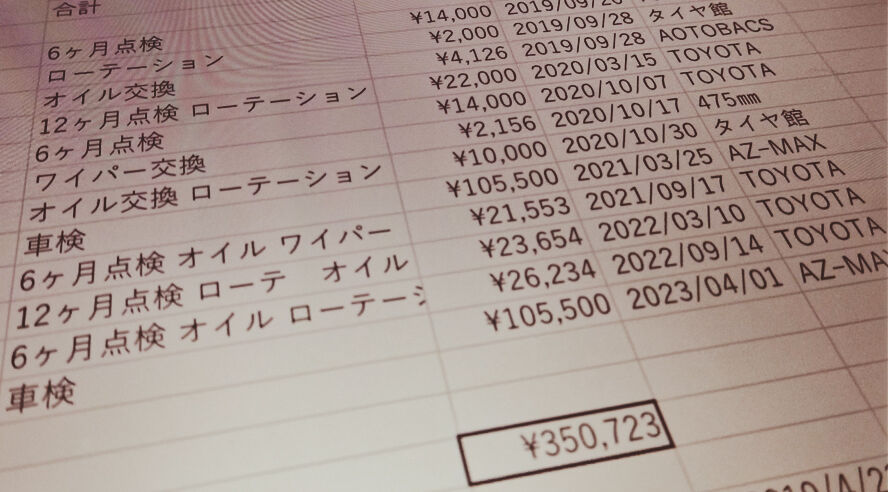 合計
6ヶ月点検 ¥14,000
ローテーション ¥2,000 2019/09/28 タイヤ館
オイル交換 ¥4,126 2019/09/28 AOTOBACS
12ヶ月点検 ローテーション ¥22,000 2020/03/15 TOYOTA
6ヶ月点検 ¥14,000 2020/10/07 TOYOTA
ワイパー交換 ¥2,156 2020/10/17 475㎜
オイル交換 ローテーション ¥10,000 2020/10/30 タイヤ館
車検 ¥105,500 2021/03/25 AZ-MAX
6ヶ月点検 オイル ワイパー ¥21,553 2021/09/17 TOYOTA
12ヶ月点検 ローテ　オイル ¥23,654 2022/03/10 TOYOTA
6ヶ月点検 オイル ローテーシ ¥26,234 2022/09/14 TOYOTA
車検 ¥105,500 2023/04/01 AZ-MA
¥350,723